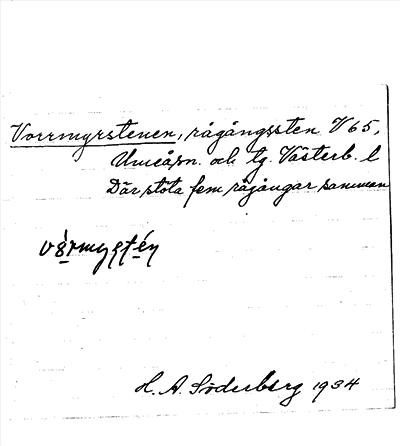 Vorrmyrstenen, rågångssten V65,
Umeå sn. och tg. Västerb. l
Där stöta fem rågångar samman
H. A. Söderberg 1934